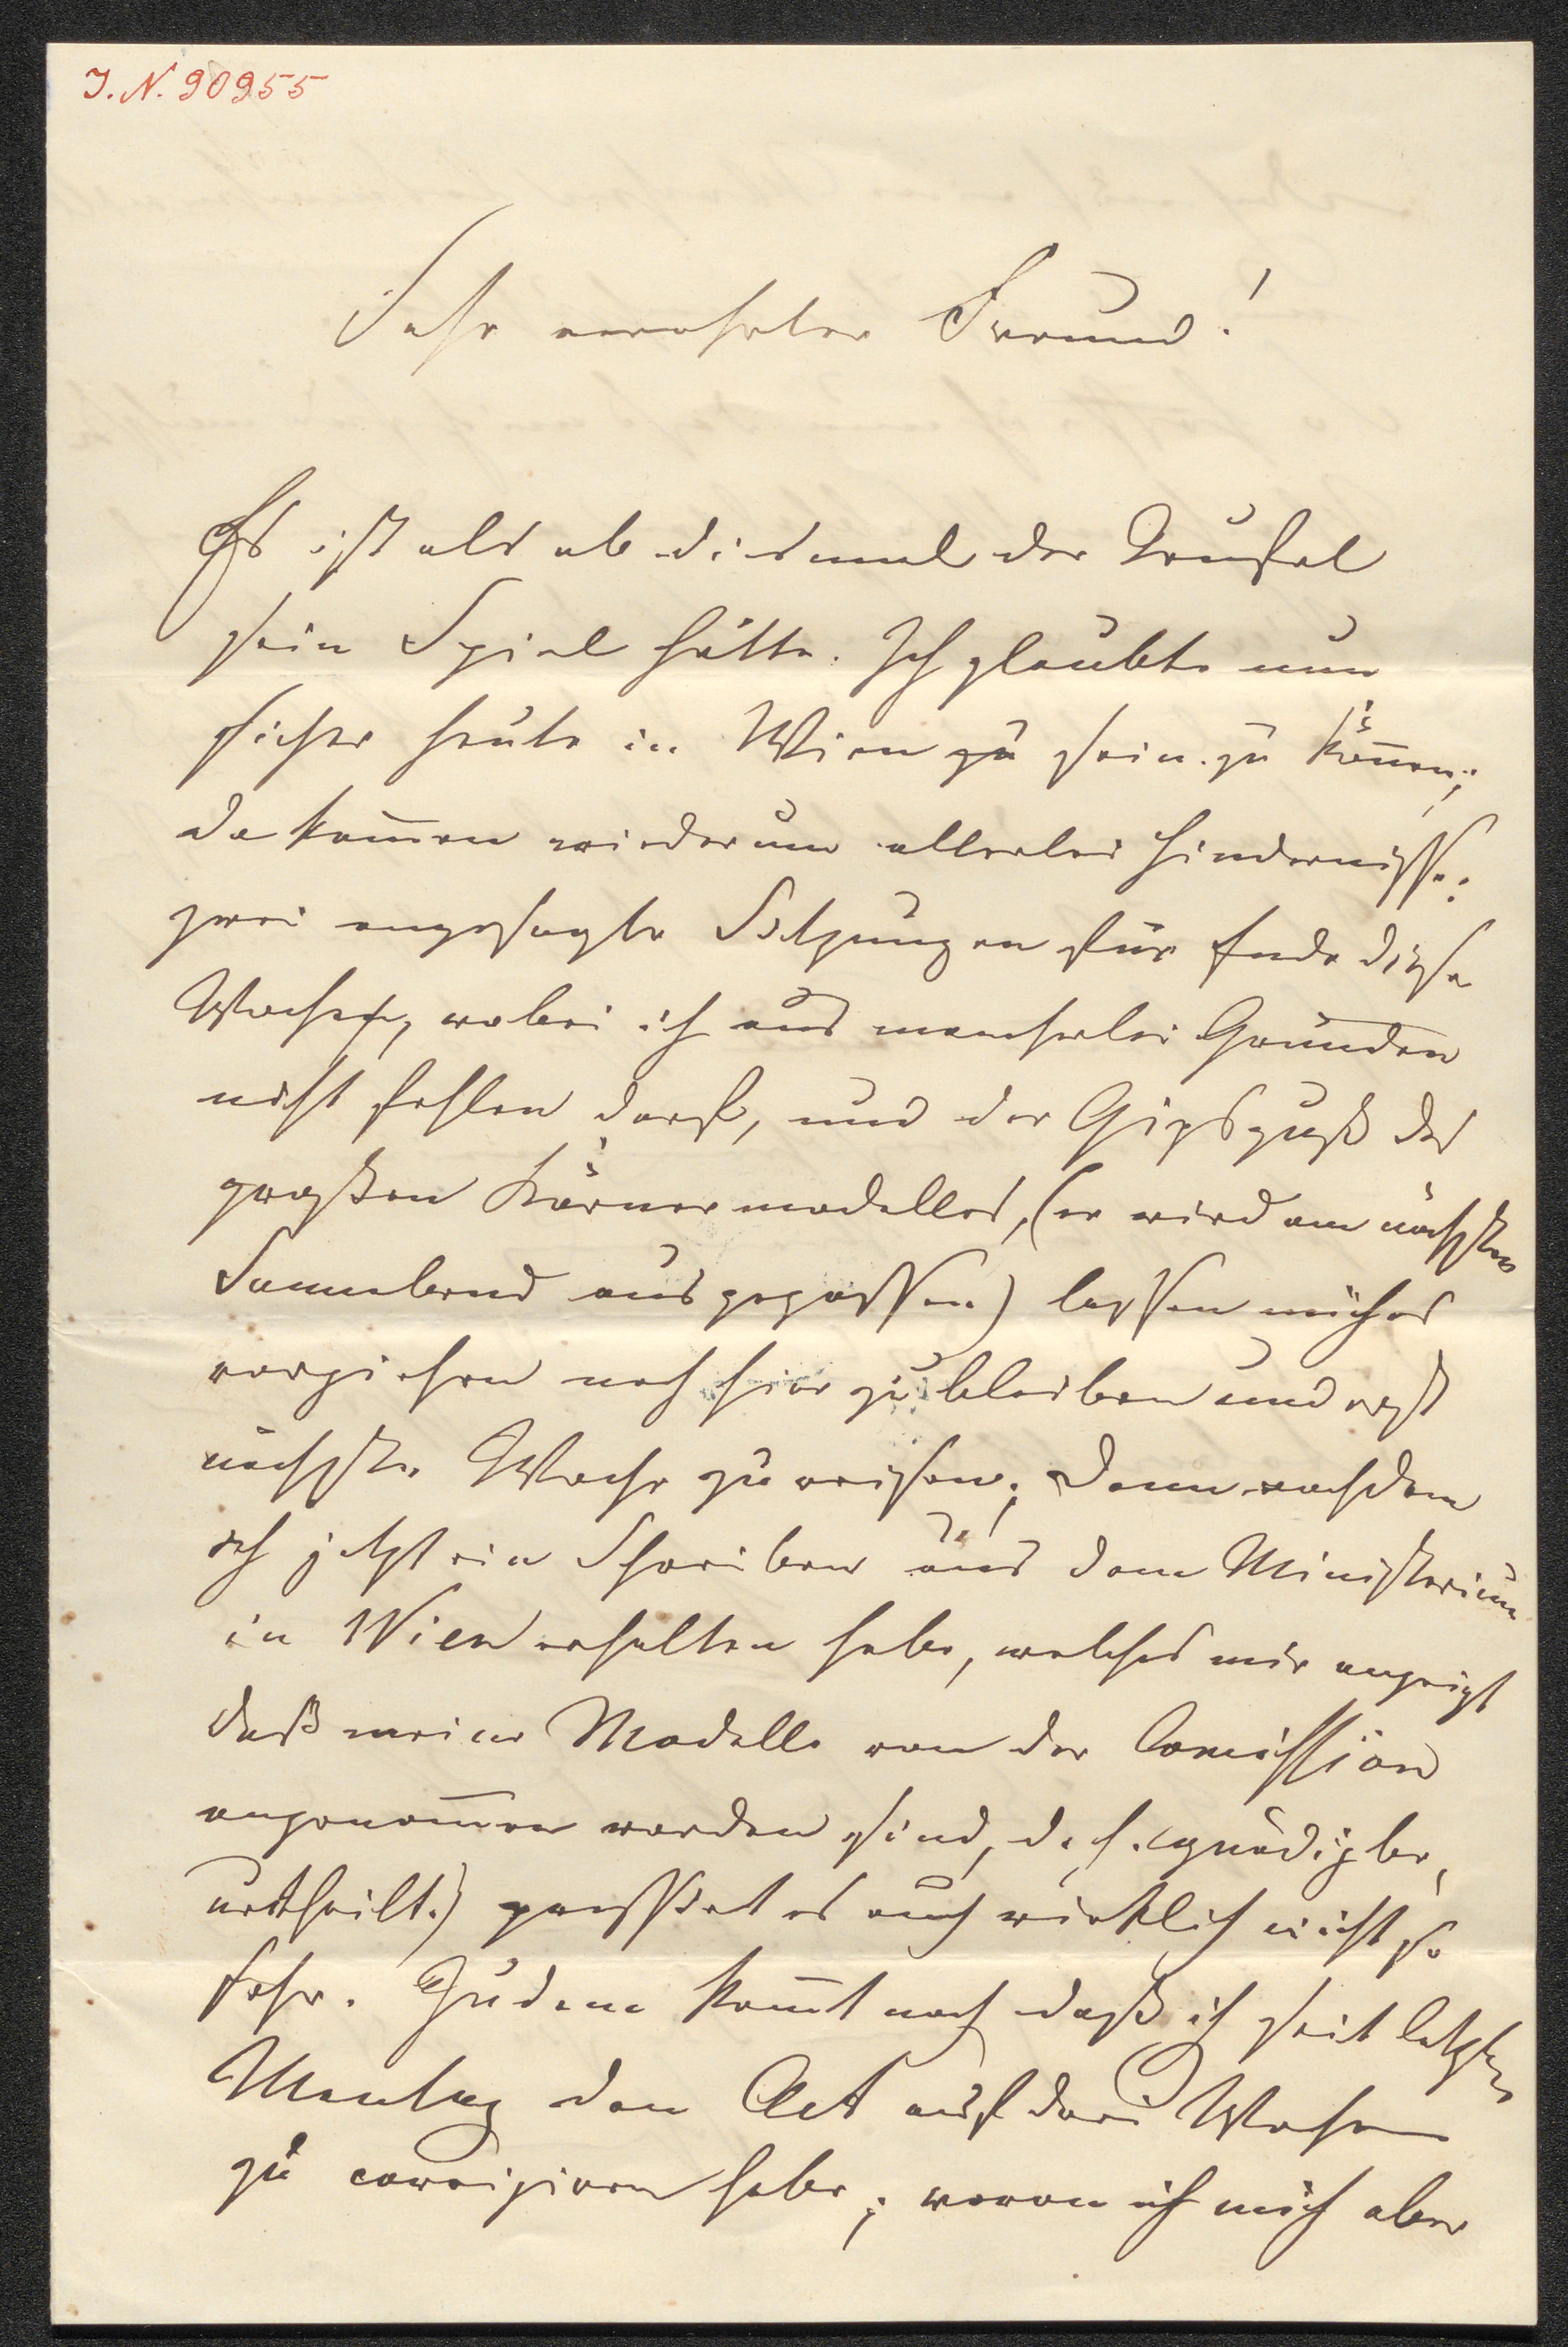 J. N. 90955
Sehr verehrter Freund!
Es ist als ob diesmal der Teufel
sein Spiel hätte. Ich glaubte nun
sicher heute in Wien zu sein zu köñen;
da kom̃en wiederum allerlei Hindernisse:
zwei angesagte Sitzungen für Ende diese
Woche, wobei ich aus mancherlei Gründen
nicht fehlen darf, und der Gipsguß des
großen Körnermodelles, (er wird am nächsten
Sonnabend ausgegossen) lassen mich es
vorziehen noch hier zu bleiben und erst
nächste Woche zu reisen; denn nachdem
ich jetzt ein Schreiben aus dem Ministerium
in Wien erhalten habe, welches mir anzeigt
daß meine Modelle von der Com̃ission
angenom̃en worden sind, d. h. (gnädig be-
urtheilt.) pressirt es auch wirklich nicht so
sehr. Zudem kom̃t noch daß ich seit letzten
Montag den Act auf drei Wochen
zu corrigieren habe; wovon ich mich aber